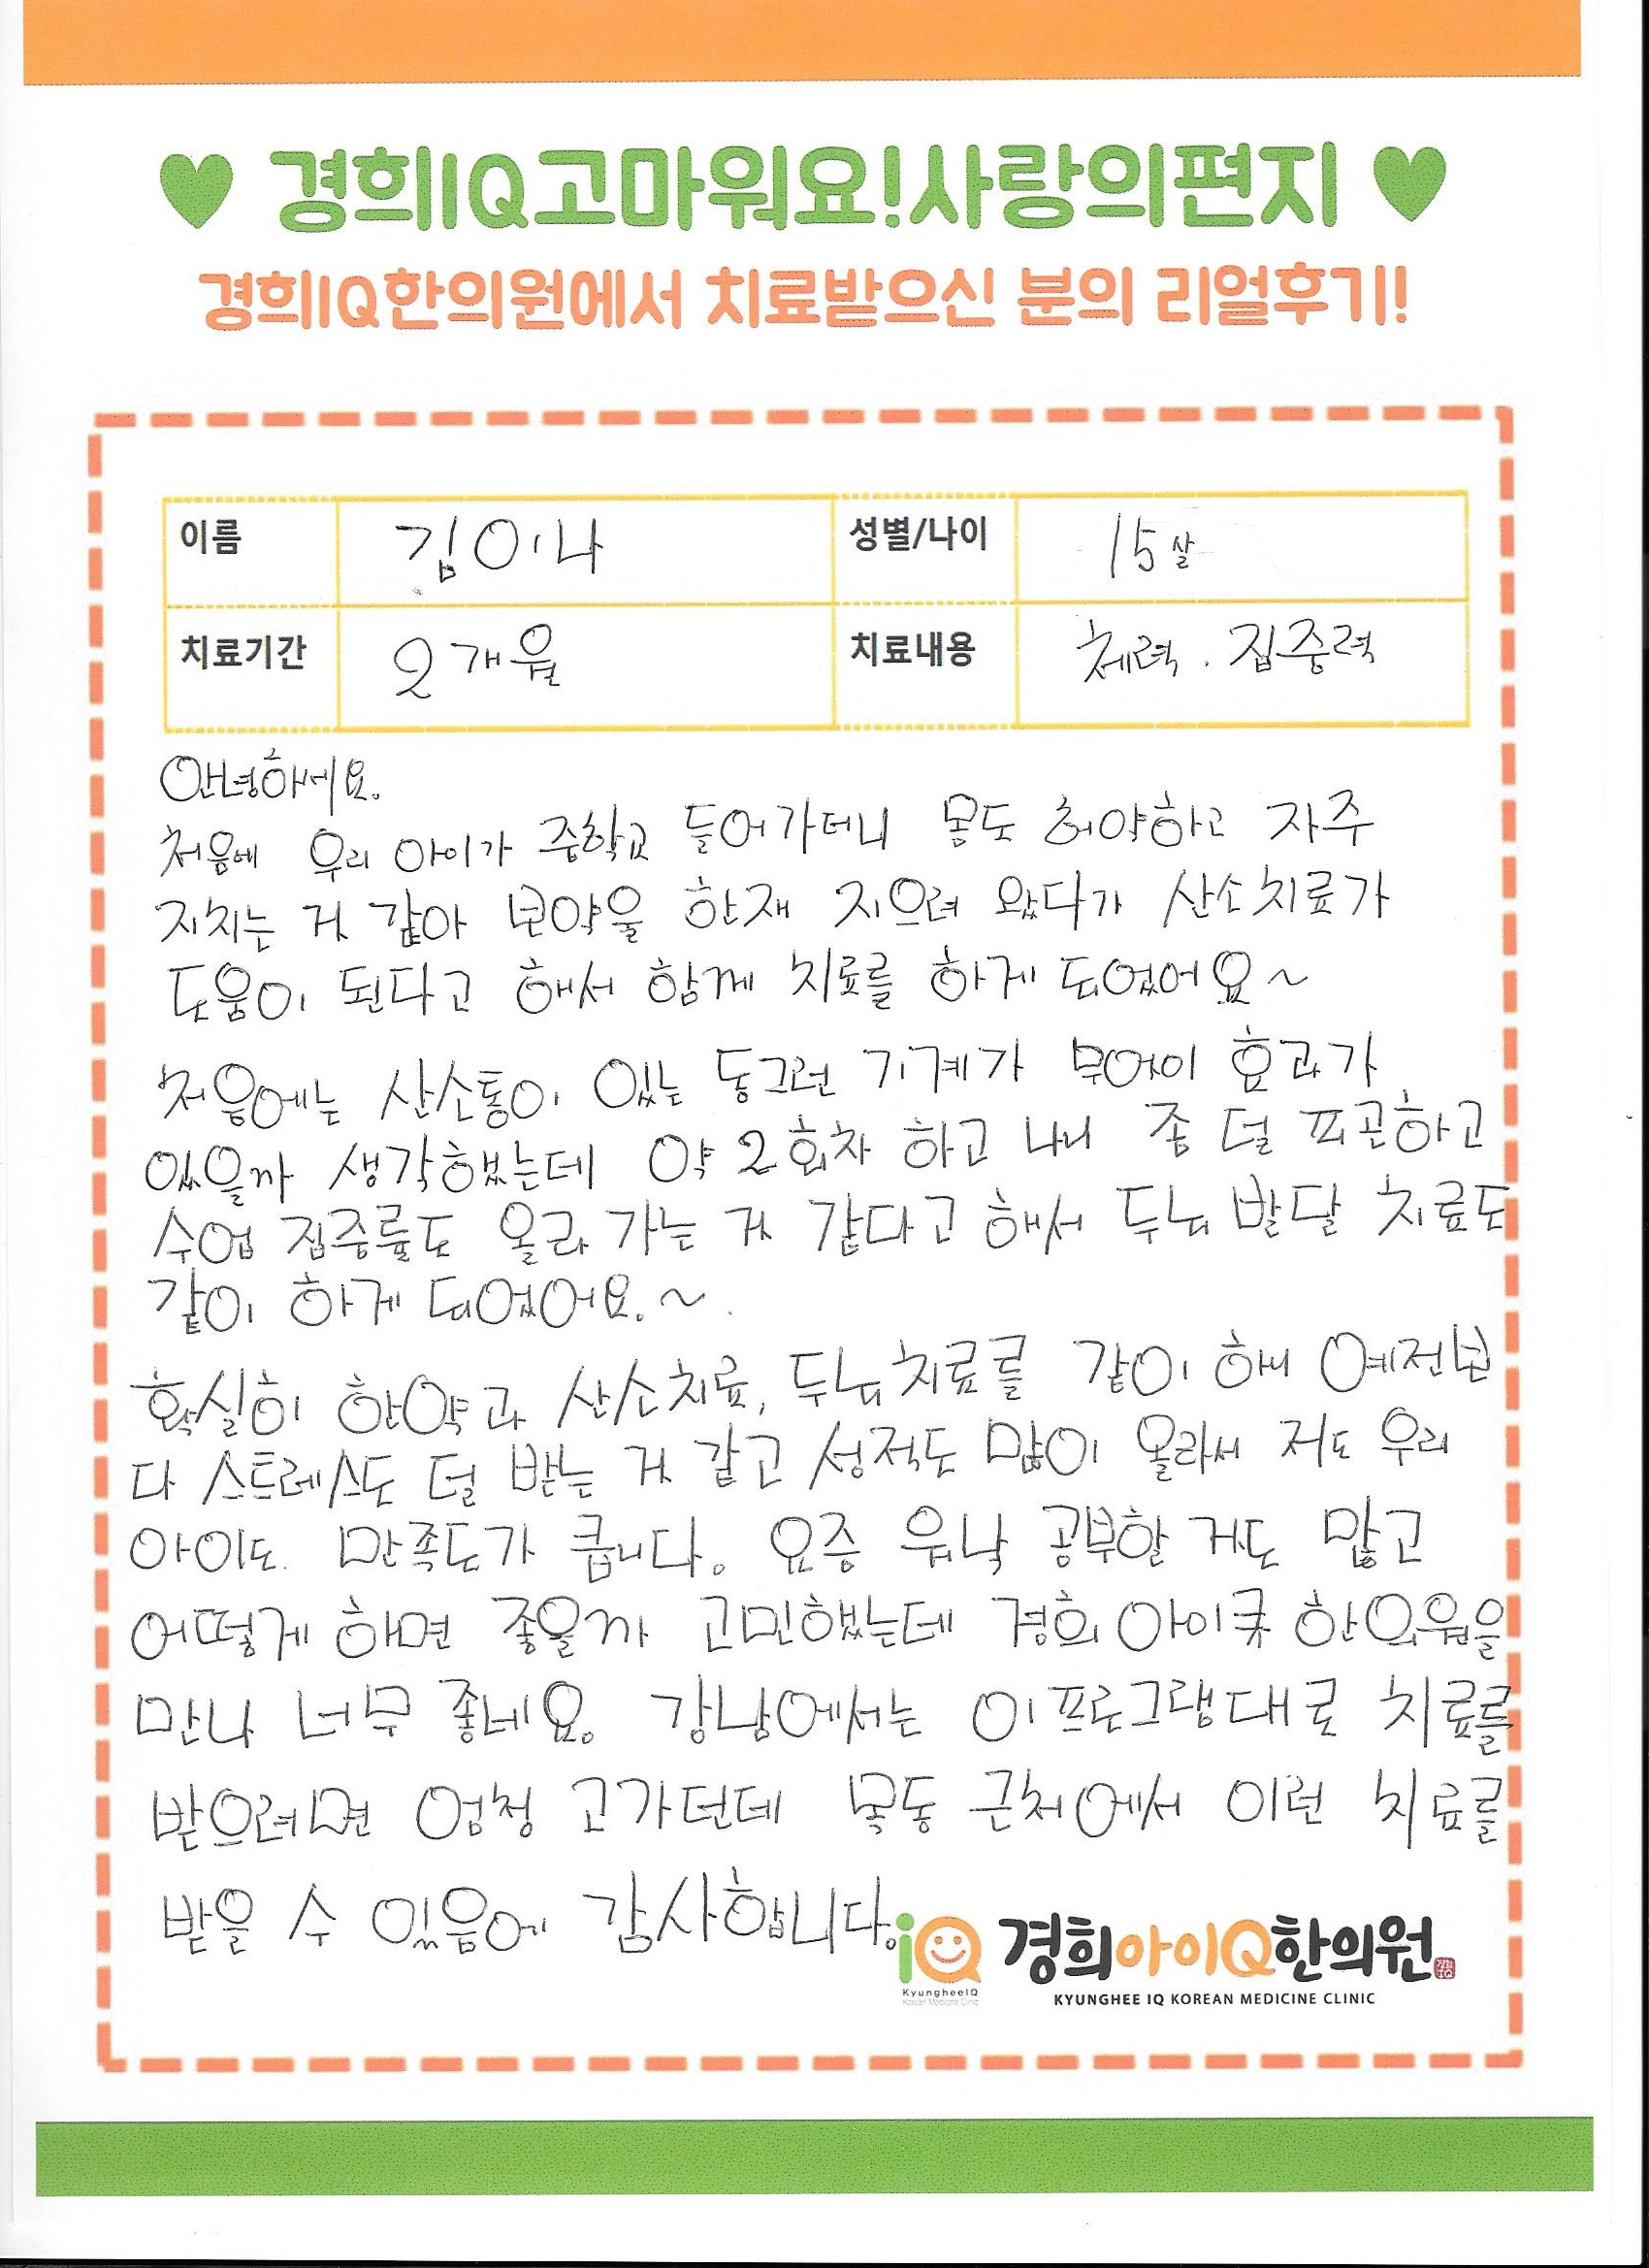 ♥ 경희IQ고마워요!사랑의편지 ♥
경희IQ한의원에서 치료받으신 분의 리얼후기!
이름 김이나 성별/나이 15살
치료기간 2개월 치료내용 체력. 집중력
안녕하세요.
처음에 우리 아이가 중학교 들어가더니 몸도 허약하고 자주
지치는 거 같아 보약을 한재 지으려 왔다가 산소치료가
도움이 된다고 해서 함께 치료를 하게 되었어요~
처음에는 산소통이 있는 동그런 기계가 무어이 효과가
있을까 생각했는데 약 2회차 하고 나니 좀 덜 피곤하고
수업 집중률도 올라 가는 거 같다고 해서 두뇌 발달 치료도
같이 하게 되었어요.~
확실히 한약과 산소치료, 두뇌치료를 같이 해니 예전보
다 스트레스도 덜 받는 거 같고 성적도 많이 올라서 저도 우리
아이도 만족도가 큽니다. 요즘 워낙 공부할 거도 많고
어떻게 하면 좋을까 고민했는데 경희 아이큐 한의원을
만나 너무 좋네요. 강남에서는 이프로그램대로 치료를
받으려면 엄청 고가던데 목동 근처에서 이런 치료를
받을 수 있음에 감사합니다.
iQ 경희아이Q한의원
KyungheeIQ
Korean Medicine Clinic
KYUNGHEE IQ KOREAN MEDICINE CLINIC